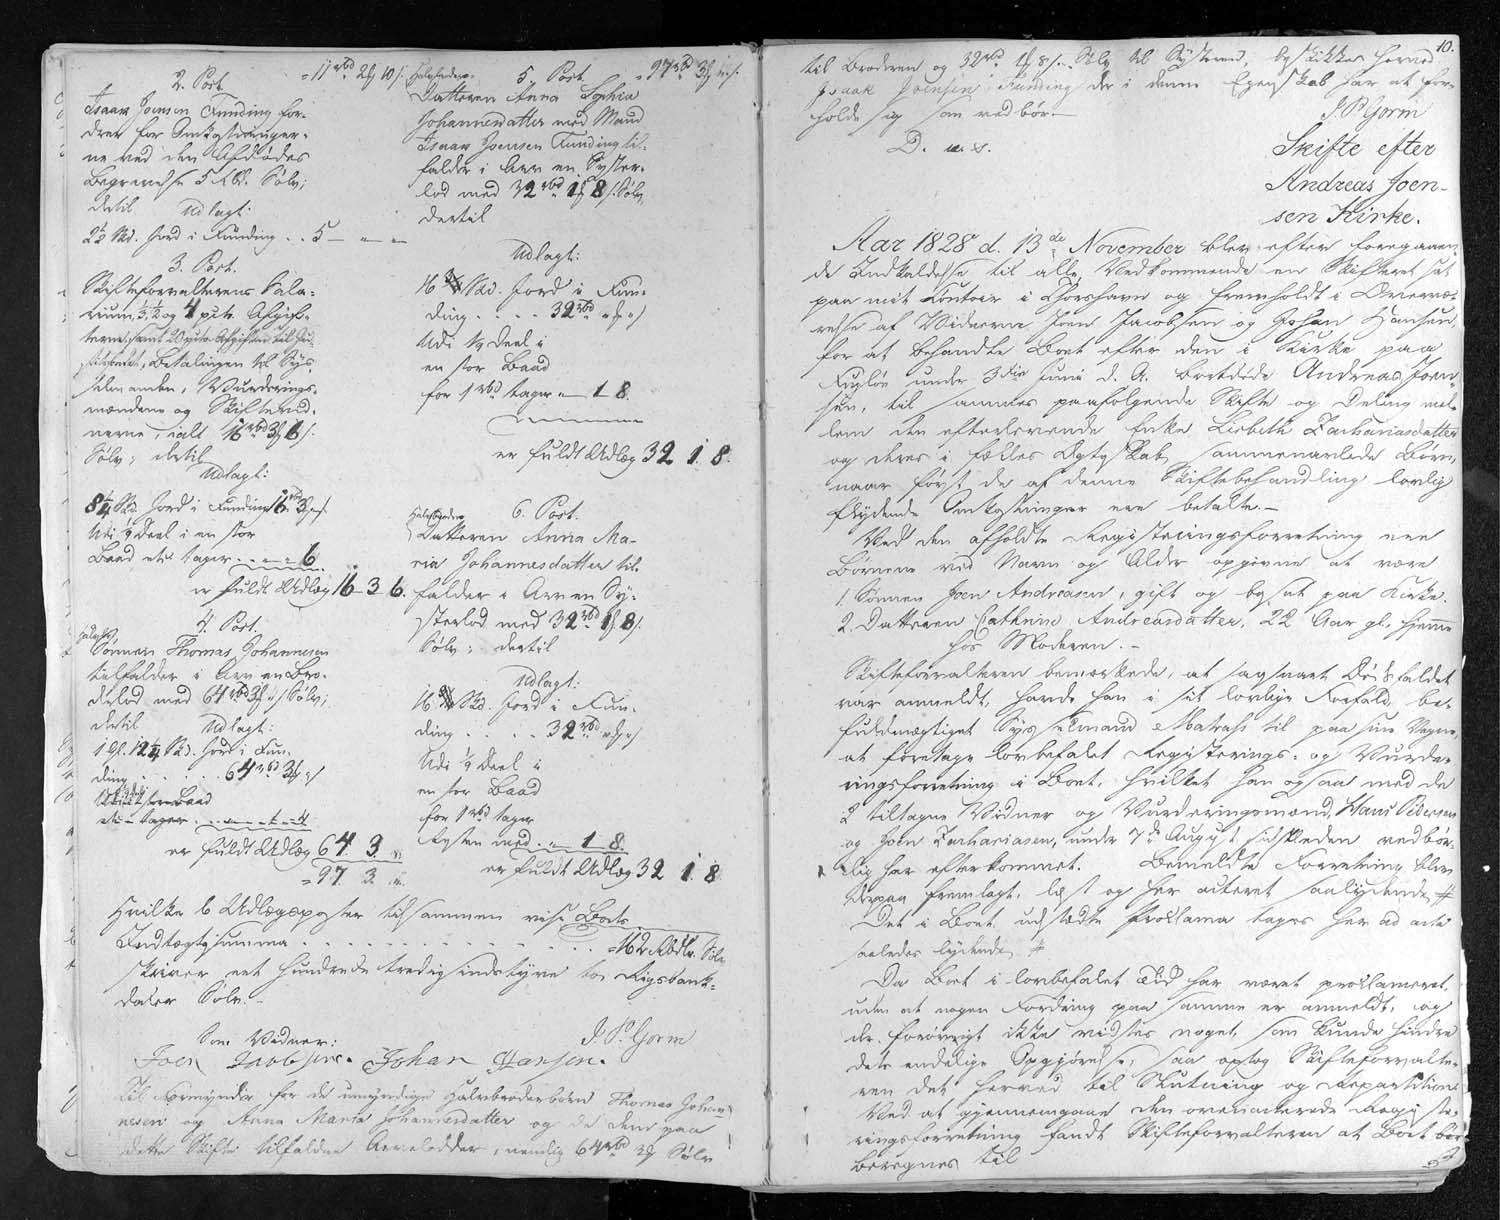 2. Post. = 11 rbd 2 ₰ 10 s.
Isaak Joensen Funding for-
drer for Omkostninger-
ne ved den Afdødes
Begravelse 5 Rbd. Sølv;
dertil Udlagt:
2½ Skd. Jord i Funding . . 5 — " — "
3. Post.
Skifteforvalterens Sala-
rium, ½ og 4 pCt. Afgif-
terne, samt
Betalingen til Sys-
selmanden, Vurderings-
mændene og Skiftevid-
nerne, ialt 16 rbd 3 ₰ 6 s.
Sølv; dertil
Udlagt:
8¼ Skd. Jord i Funding 16 rbd 3 ₰ " s.
Udi Deel i en stor
Baad tages . . . " — " 6.
er fuldt Udlæg 16 — 3 — 6.
4. Post.
Halvbr.
Sønnen Thomas Johannesen
tilfalder i Arv en Bro-
derlod med 64 rbd 3 ₰ " s Sølv;
dertil Udlagt:
1 Gl. 12¼ Skd. Jord i Fun-
ding . . . . . . 64 rbd 3 ₰ " s
er fuldt Udlæg 64. 3. "
= 97. 3. "
Halvbroder- 5. Post. = 97 rbd 3 ₰ " s.
Datteren Anna Sophia
Johannesdatter med Mand
Isaak Joensen Funding til-
falder i Arv en Syster-
lod med 32 rbd 1 ₰ 8 s. Sølv,
dertil
Udlagt:
16 Skd. Jord i Fun-
ding . . . . 32 rbd " ₰ " s
Udi ¼ Deel i
en stor Baad
for 1 rbd tages " — 1 8.
er fuldt Udlæg 32 1. 8.
Halvbroder 6. Post.
Datteren Anna Ma-
ria Johannesdatter til-
falder i Arv en Sy-
sterlod med 32 rbd 1 ₰ 8 s.
Sølv; dertil
Udlagt:
16 Skd. Jord i Fun-
ding . . . . 32 rbd " ₰ " s
Udi ¼ Deel i
en stor Baad
for 1 rbd tages
Resten med . " . 1 8.
er fuldt Udlæg 32 1. 8.
Hvilke 6 Udlægsposter tilsammen vise Boets
Indtægtssumma . . . . . . . . . . = 162 Rbdlr. Sølv
skriver eet Hundrede tredsindstyve to Rigsbank-
daler Sølv. —
Som Vidner: J. P. Gorm
Joen Jacobsen. Johan Hansen.
Til Formynder for de umyndige Halvbroderbørn Thomas Johan-
nesen og Anna Maria Johannesdatter og de dem paa
dette Skifte tilfaldne Arvelodder, nemlig 64 rbd 3 ₰ Sølv
10.
til Broderen og 32 rbd 1 ₰ 8 s. Sølv til Systeren, beskikkes herved
Isaak Joensen Funding der i denne Egenskab har at for-
holde sig som vedbør. —
J. P. Gorm
D. u. s.
Skifte efter
Andreas Joen-
sen Kirke.
Aar 1828 d. 13de November blev efter foregaaen-
de Indkaldelse til alle Vedkommende en Skifteret sat
paa mit Contoir i Thorshavn og fremholdt i Overvæ-
relse af Vidnerne Joen Jacobsen og Johan Hansen
for at behandle Boet efter den i Kirke paa
Fugløe under 3die Juni d. A. bortdøde Andreas Joen-
sen, til sammes paafølgende Skifte og Deling mel-
lem den efterlevende Enke Lisbeth Zachariasdatter
og deres i fælles Ægteskab sammenavlede Børn,
naar først de af denne Skiftebehandling lovlig
flydende Omkostninger ere betalte. —
Ved den afholdte Registeringsforretning ere
Børnene ved Navn og Alder opgivne at være
1. Sønnen Joen Andreasen, gift og bosat paa Kirke.
2. Datteren Cathrine Andreasdatter, 22 Aar gl. hjemme
hos Moderen. —
Skifteforvalteren bemærkede, at saasnart Dødsfaldet
var anmeldt, havde han i sit lovlige Forfald be-
fuldmægtiget Sysselmand Matras til paa sine Vegne,
at foretage lovbefalet Registerings- og Vurde-
ringsforretning i Boet, hvilket han ogsaa med de
2 tiltagne Vidner og Vurderingsmænd, Hans Pedersen
og Joen Zachariasen, under 7de August sidstleden vedbør-
lig har efterkommet. Bemeldte Forretning blev
derpaa fremlagt, læst og her acteret saalydende #
Det i Boet udstædte Proklama tages her ad acta
saaledes lydende #
Da Boet i lovbefalet Tid har været proklameret,
uden at nogen Fordring paa samme er anmeldt, og
der forøvrigt ikke vidstes noget, som kunde hindre
dets endelige Opgjørelse; saa optog Skifteforvalte-
ren det herved til Slutning og Repartition.
Ved at gjennemgaae den overleverede Registe-
ringsforretning fandt Skifteforvalteren at Boet bør
beregnes til